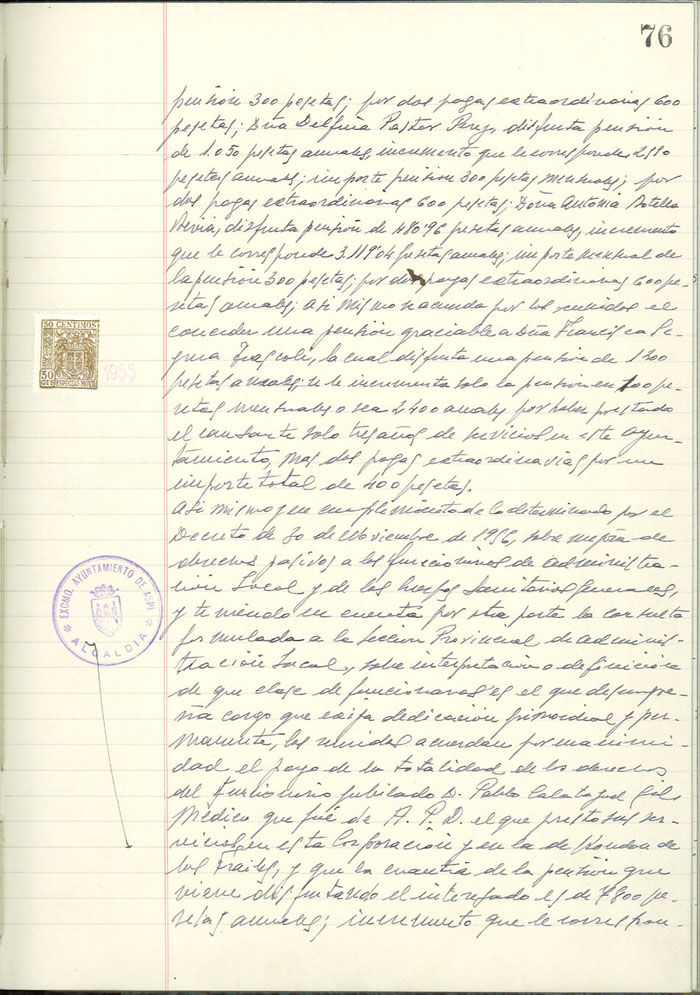 76
pensión 300 pesetas; por dos pagas extraordinarias 600
pesetas; Dña Delfina Pastor Perez, disfruta pensión
de 1.050 pesetas anuales, incremento que le corresponde 2550
pesetas anuales; importe pensión 300 pesetas mensuales; por
dos pagas extraordinarias 600 pesetas; Doña Antonia Botella
Devia, disfruta pensión de 480'96 pesetas anuales, incremento
que le corresponde 3.119'04 pesetas anuales; importe mensual de
la pensión 300 pesetas; por dos pagas extraordinarias 600 pe-
setas anuales; Asi mismo se acuerda por los reunidos el
conceder una pensión graciable a Dña Francisca Se-
gura, la cual disfruta una pensión de
pesetas anuales; se le incrementa solo la pensión en 200 pe-
setas mensuales o sea 2400 anuales por haber prestado
el causante solo tres años de servicios en este Ayun-
tamiento, mas dos pagas extraordinarias por un
importe total de 400 pesetas.
Asi mismo y en cumplimiento de lo determinado por el
Decreto de 30 de Noviembre de 1956, sobre mejora de
derechos pasivos a los funcionarios de administra-
ción Local y de los Cuerpos Sanitarios Generales,
y teniendo en cuenta por otra parte la consulta
formulada a la Sección Provincial de adminis-
tración Local, sobre interpretación o definición
de que clase de funcionarios es el que desempe-
ña cargo que exija dedicación primordial y per-
manente, los reunidos acuerdan por unanimi-
dad el pago de la totalidad de los derechos
del funcionario jubilado D. Pablo Calatayud Gil,
Médico que fué de A. P. D. el que prestó sus ser-
vicios en esta Corporación y en la de Hondon de
los Frailes, y que la cuantia de la pensión que
viene disfrutando el interesado es de 7800 pe-
setas anuales; incremento que le corres pon-
50 CENTIMOS
50
CTS
ESPECIAL MOVIL
1955
EXCMO. AYUNTAMIENTO DE ASPE
ALCALDIA